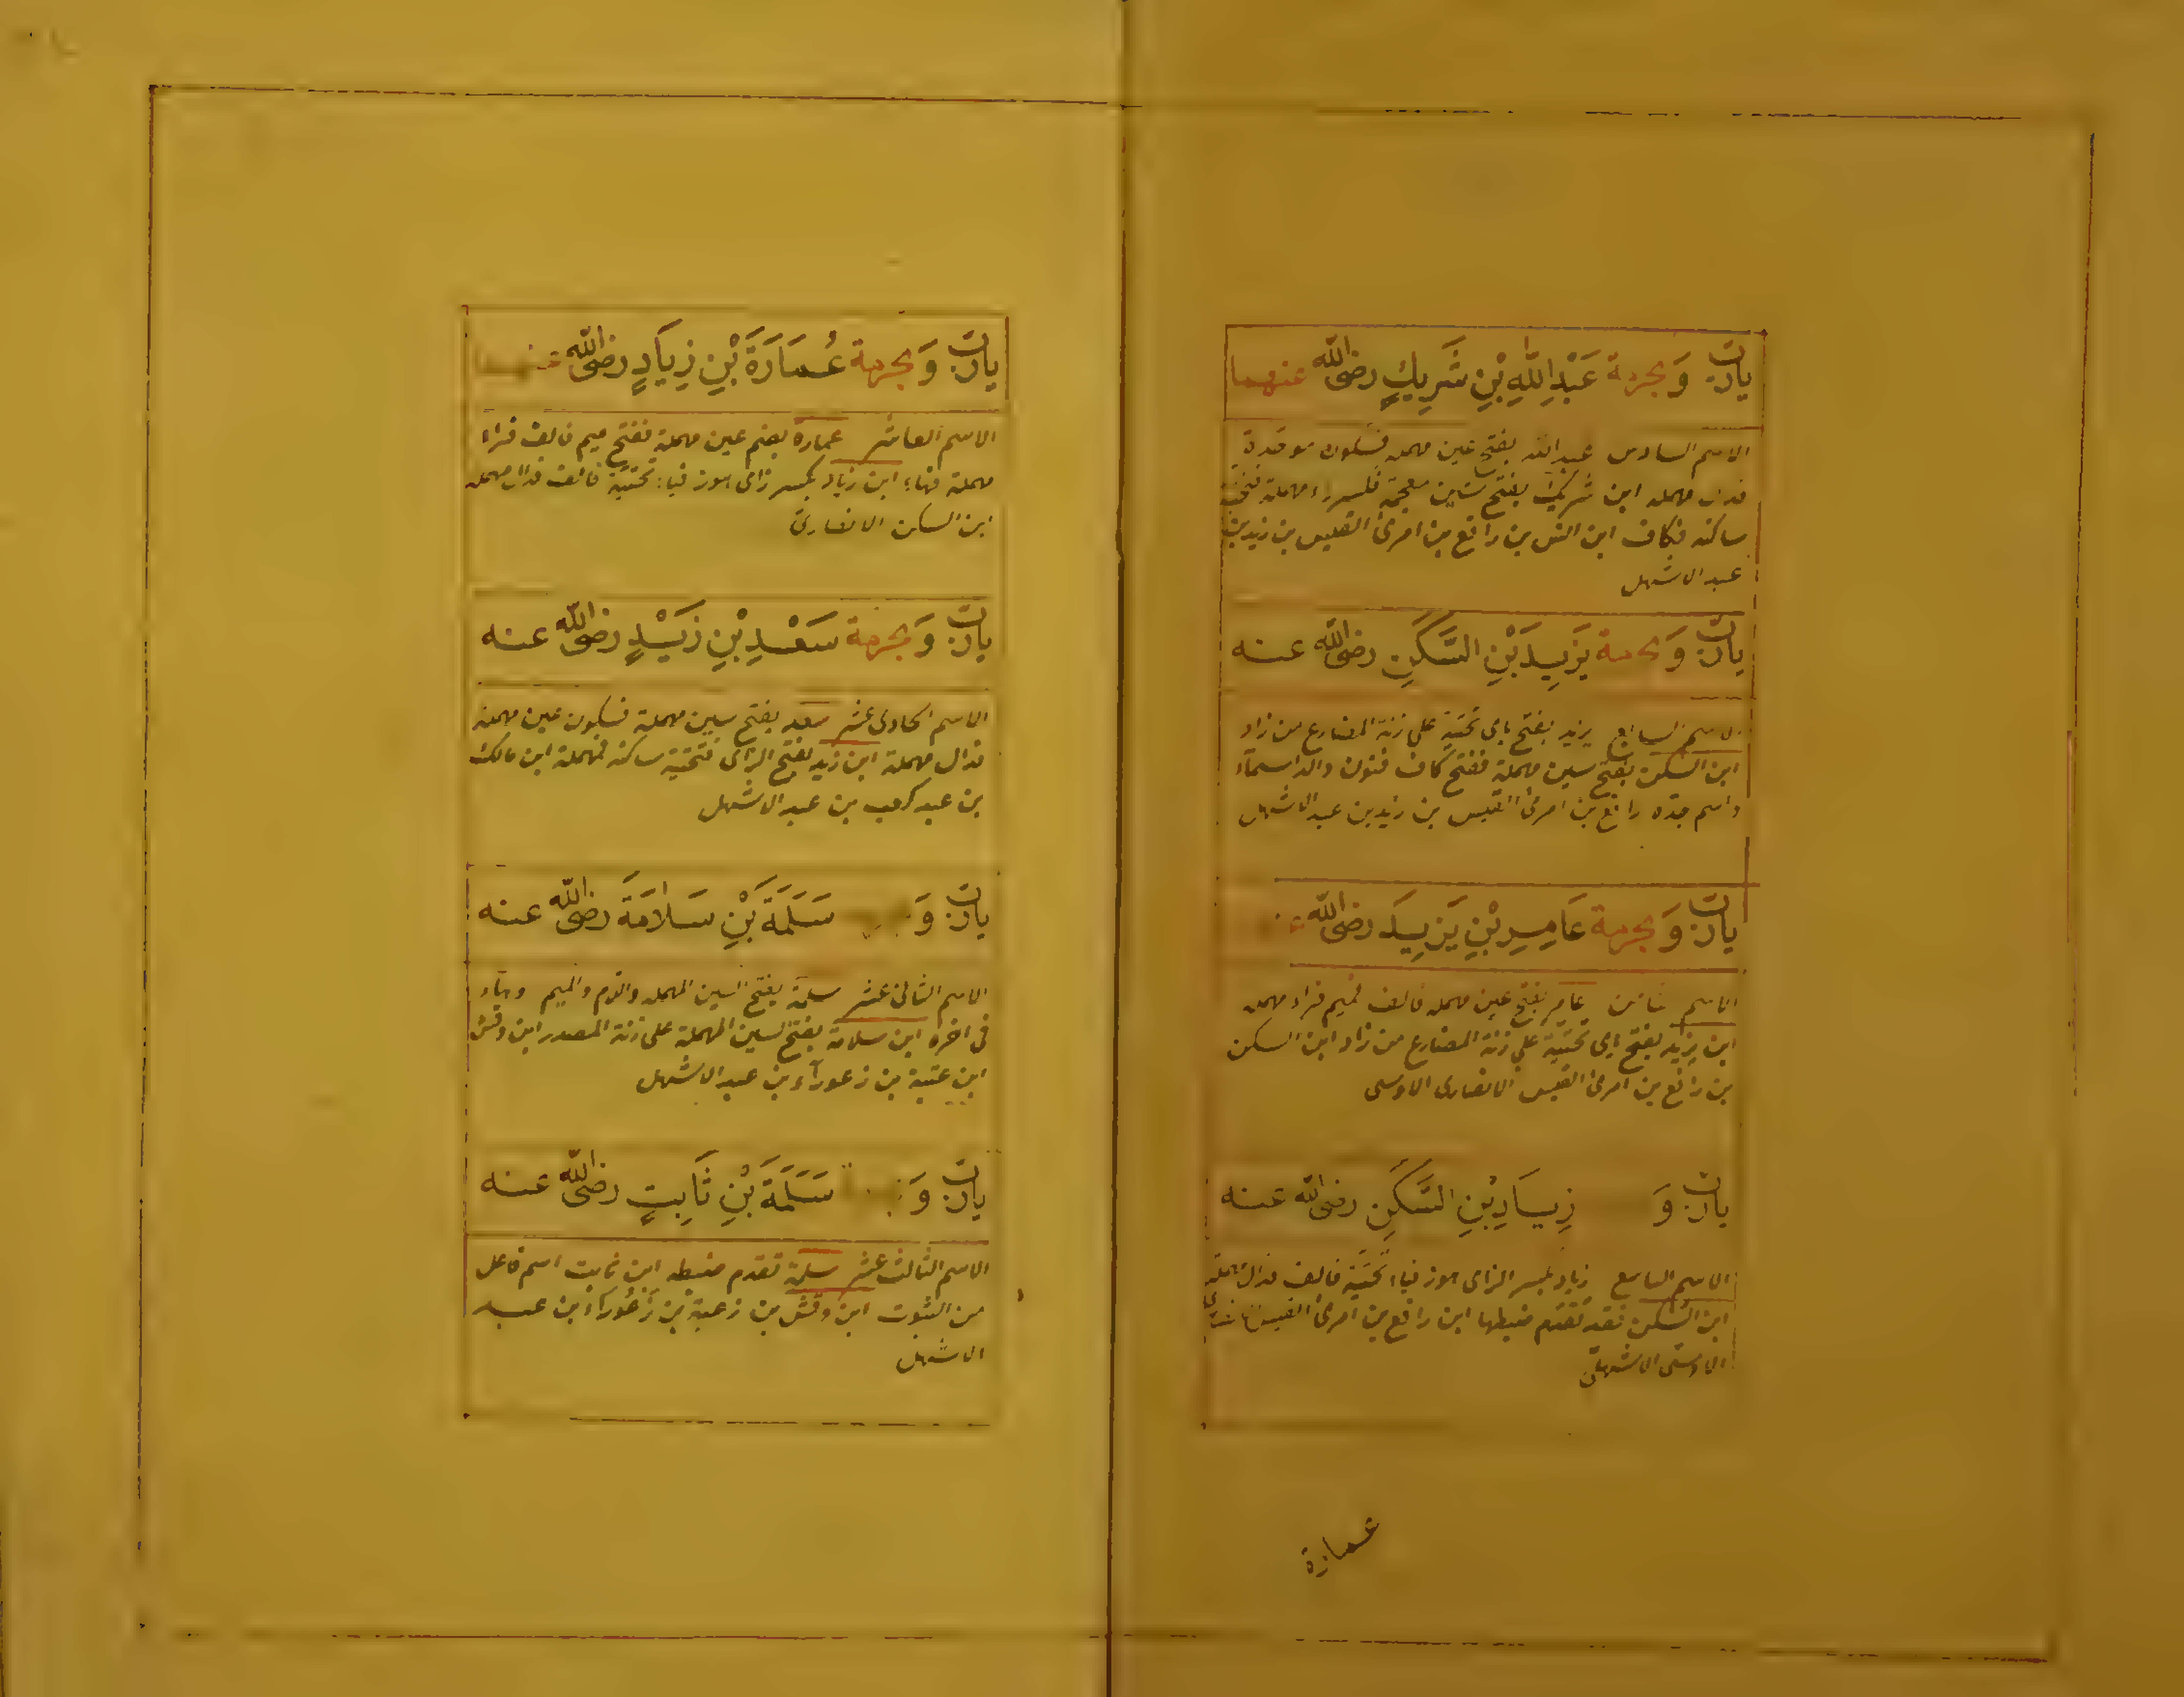 يا رب وَبحرمة عَبْدِ اللهِ بْنِ شَرِيكٍ رضى الله عنهما
الاسم السادس عبد الله بفتح عين مهمله فسكون موحدة
فدال مهمله ابن شريك بفتح شين معجمة فكسر راء مهملة فتحتية
ساكنه فكاف ابن انس بن رافع بن امرئ القيس بن زيد بن
عبد الاشهل
يا رب وَبحرمة يَزِيدَ بْنِ السَّكَنِ رضى الله عنه
الاسم السابع يزيد بفتح ياى تحتية على زنة المضارع من زاد
ابن السكن بفتح سين مهملة ففتح كاف فنون والد اسماء
واسم جده رافع بن امرئ القيس بن زيد بن عبد الاشهل
يا رب وَبحرمة عَامِرِ بْنِ يَزِيدَ رضى الله
الاسم ثامن عامر بفتح عين مهمله فالف فميم فراء مهمله
ابن يزيد بفتح ياى تحتية على زنة المضارع من زاد ابن السكن
بن رافع بن امرئ القيس الانصارى الاوسى
يا رب وَ زِيَادِ بْنِ السَّكَنِ رضى الله عنه
الاسم التاسع زياد بكسر الزاى هوز فياء تحتية فالف فدال مهملة
ابن السكن فقد تقدم ضبطها ابن رافع بن امرئ القيس
الاوسى الاشهلى
عمارة
يا رب وَبحرمة عُمَارَةَ بْنِ زِيَادٍ رضى الله عنهما
الاسم العاشر عمارة بضم عين مهملة ففتح ميم فالف فراء
مهملة فهاء ابن زياد بكسر زاى هوز فياء تحتية فالف فدال مهمله
ابن السكن الانصارى
يا رب وَبحرمة سَعْدِ بْنِ زَيْدٍ رضى الله عنه
الاسم الحادى عشر سعد بفتح سين مهملة فسكون عين مهملة
فدال مهملة ابن زيد بفتح الزاى فتحتية ساكنه فمهملة ابن مالك
بن عبد كعب بن عبد الاشهل
يا رب وَ سَلَمَةَ بْنِ سَلَامَةَ رضى الله عنه
الاسم الثانى عشر سلمة بفتح السين المهمله واللام والميم وهاء
فى اخره ابن سلامة بفتح السين المهملة على زنة المصدر ابن وقش
ابن عتبة بن زعوراء بن عبد الاشهل
يا رب وَ سَلَمَةَ بْنِ ثَابِتٍ رضى الله عنه
الاسم الثالث عشر سلمة تقدم ضبطه ابن ثابت اسم فاعل
من الثبوت ابن وقش بن زغبة بن زعوراء بن عبد
الاشهل